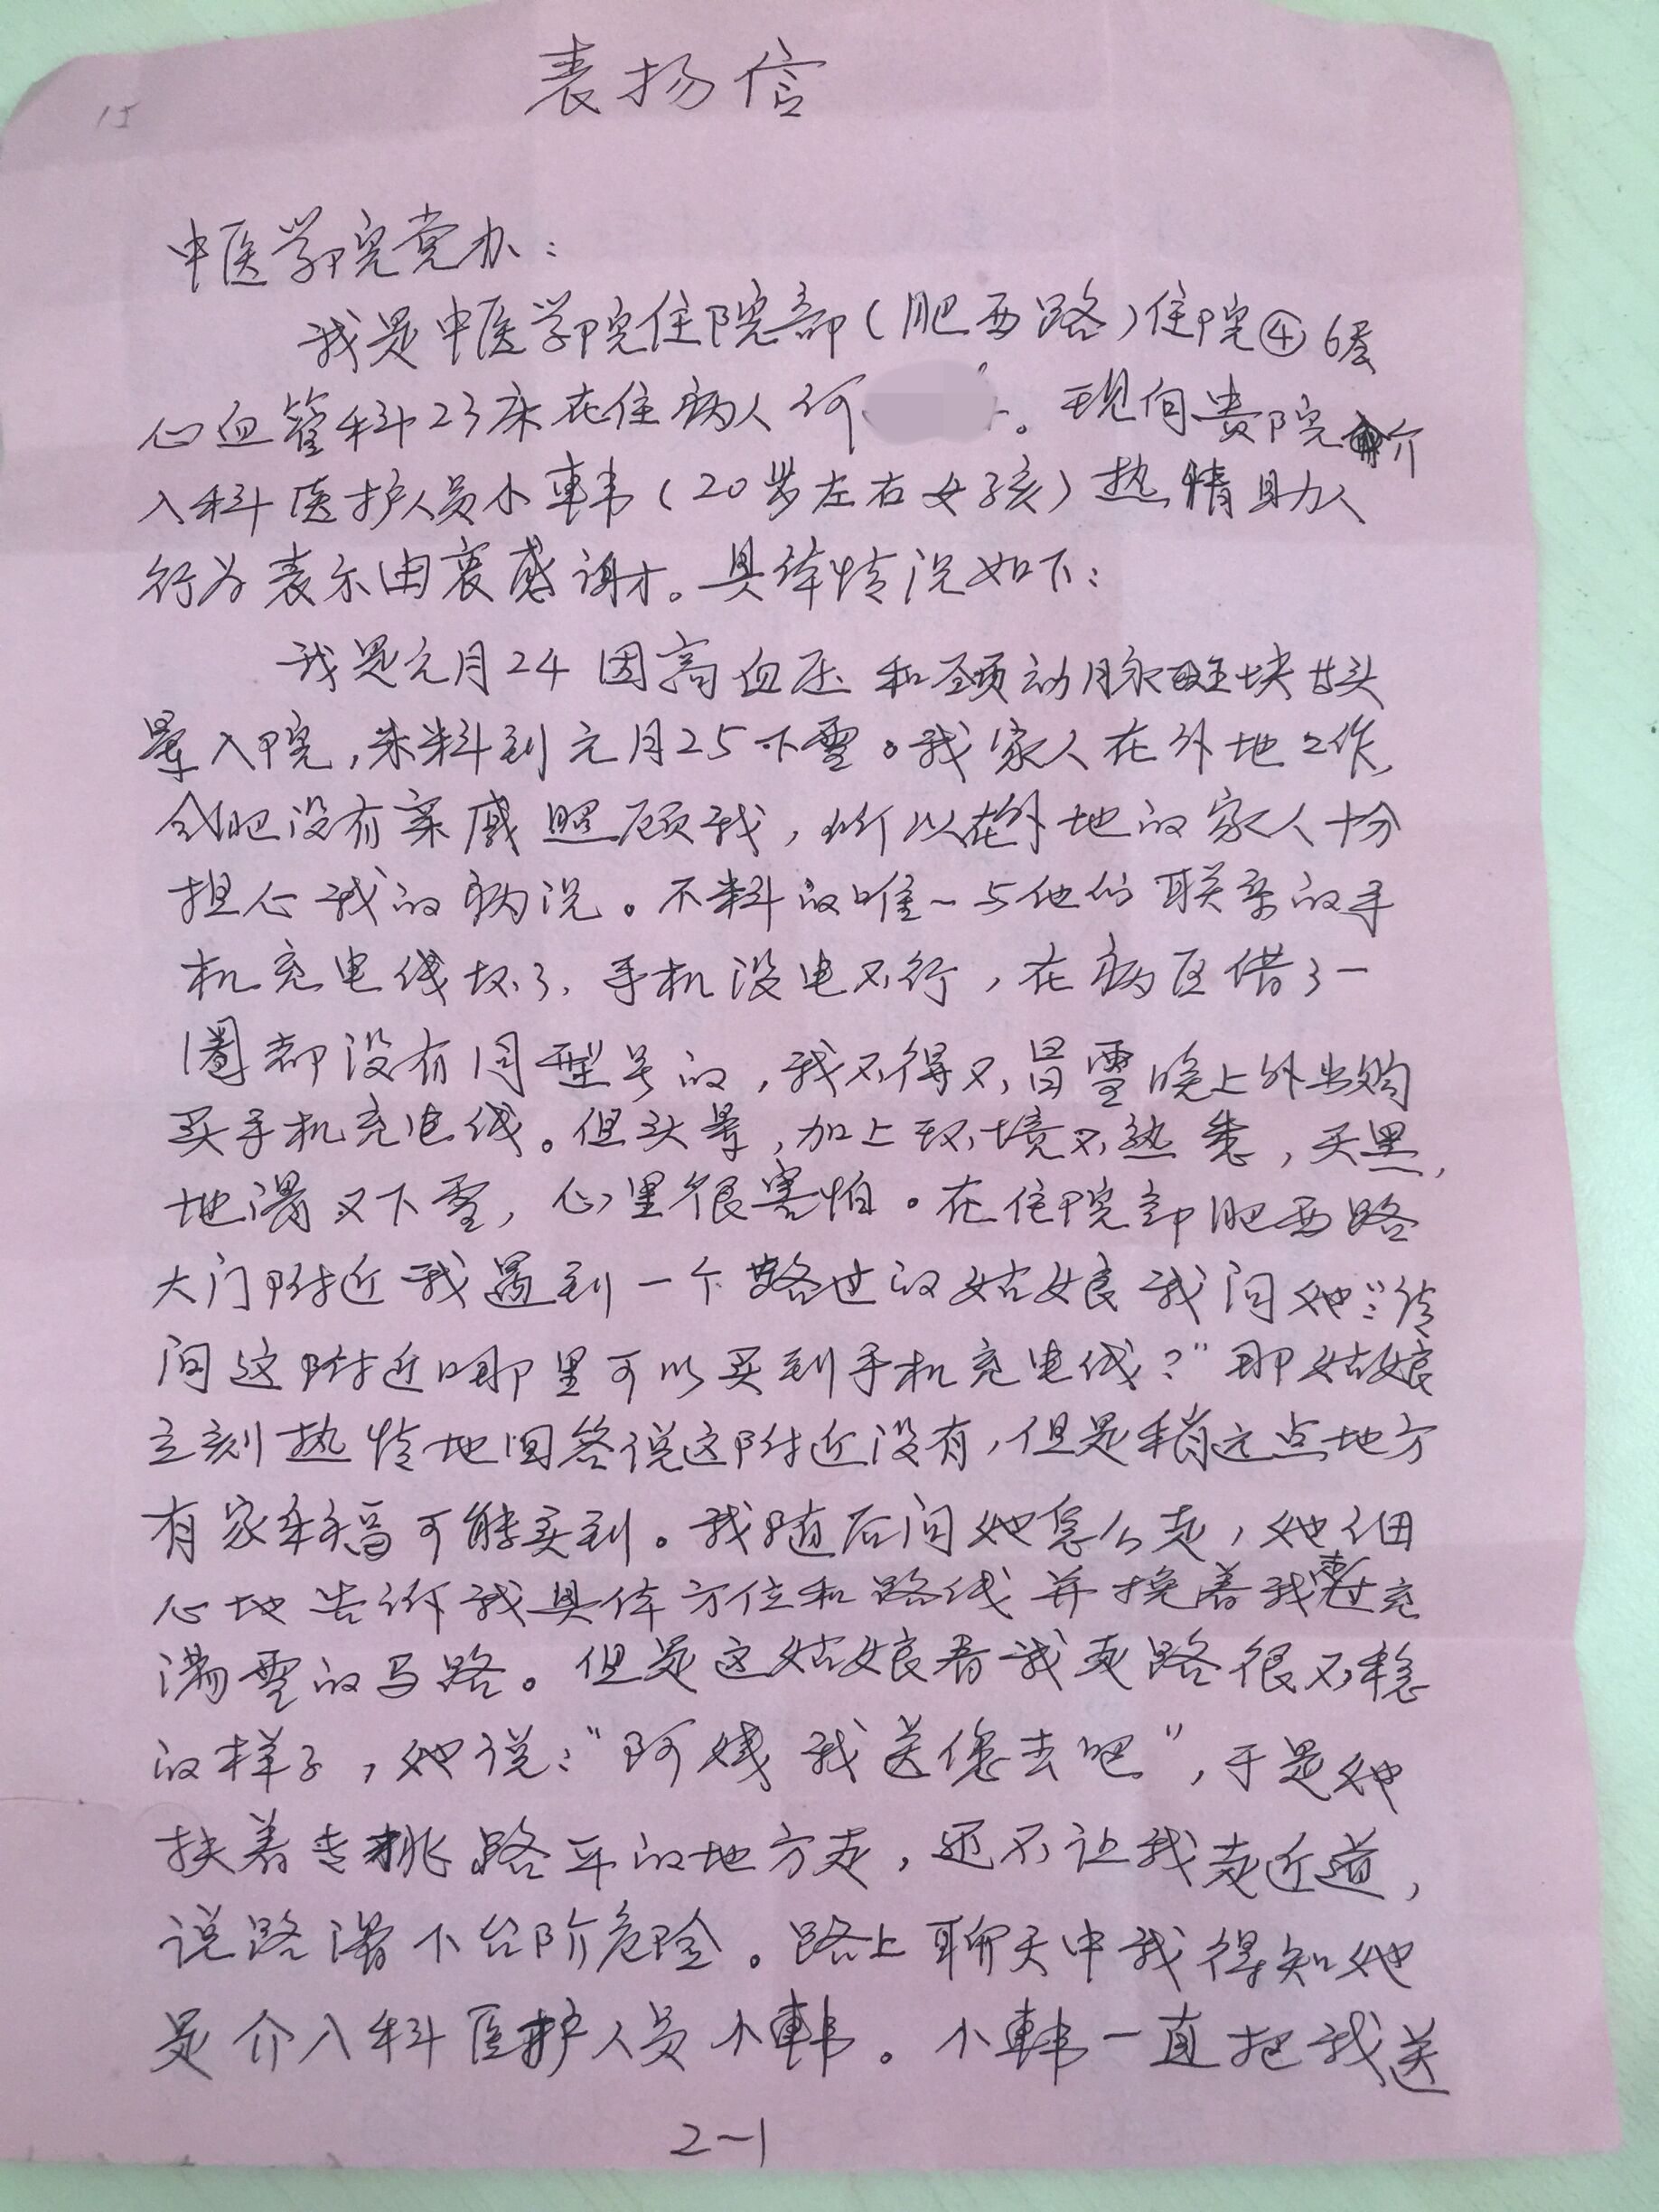 15
表扬信
中医学院党办：
我是中医学院住院部(肥西路)住院④6层
心血管科23床在住病人何。现向贵院介
入科医护人员小韩(20岁左右女孩)热情助人
行为表示由衷感谢。具体情况如下：
我是元月24因高血压和颈动脉斑块头
晕入院，未料到元月25下雪。我家人在外地工作，
合肥没有亲戚照顾我，所以在外地的家人十分
担心我的病况。不料的唯一与他们联系的手
机充电线坏了，手机没电不行，在病区借了一
圈都没有同型号的，我不得不冒雪晚上外出购
买手机充电线。但头晕，加上环境不熟悉，天黑，
地滑又下雪，心里很害怕。在住院部肥西路
大门附近我遇到一个路过的姑娘我问她："请
问这附近哪里可以买到手机充电线？"那姑娘
立刻热情地回答说这附近没有，但是稍远点地方
有家永福可能买到。我随后问她怎么走，她细
心地告诉我具体方位和路线并搀着我走过充
满雪的马路。但是这姑娘看我走路很不稳
的样子，她说："阿姨我送您去吧"，于是她
扶着专挑路平的地方走，还不让我走近道，
说路滑下台阶危险。路上聊天中我得知她
是介入科医护人员小韩。小韩一直把我送
2-1